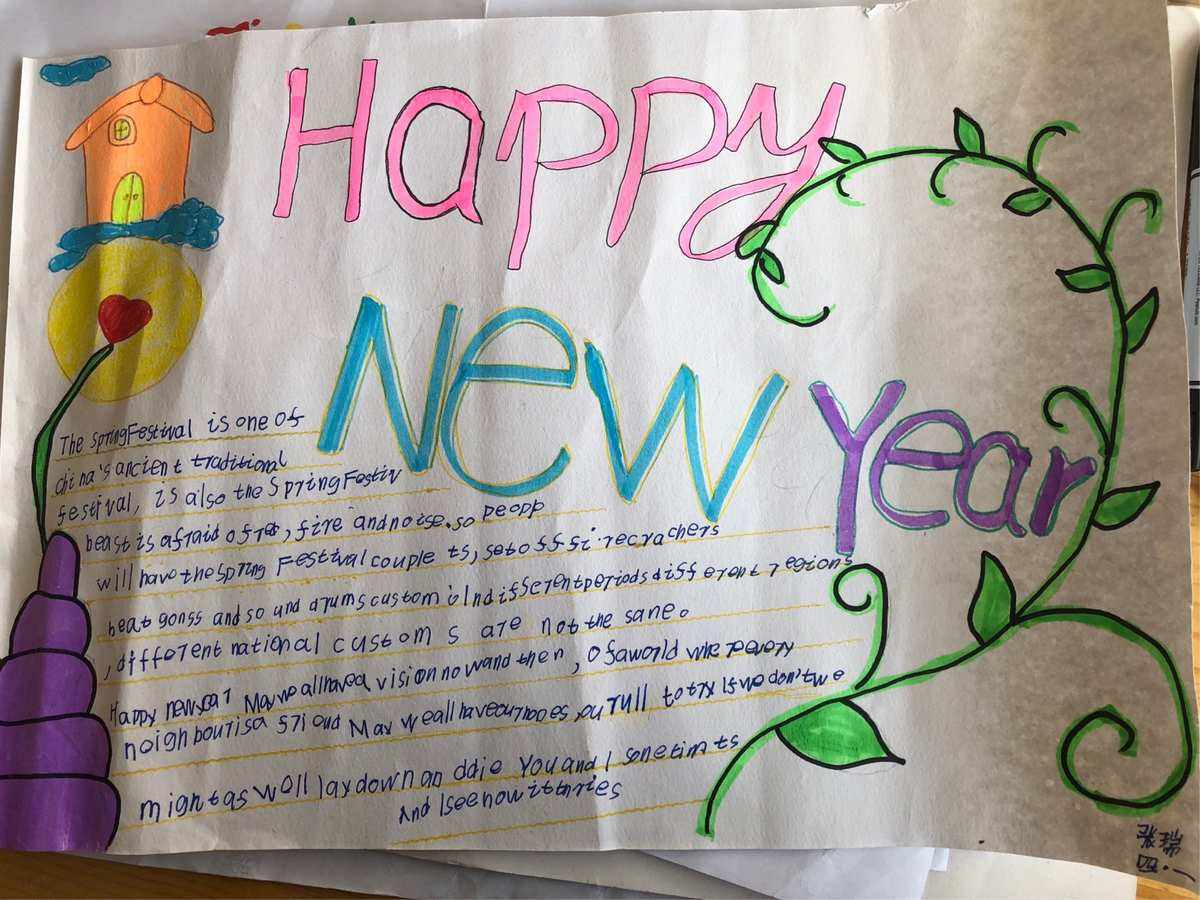 Happy
New Year
The SpringFestival is one of
china's ancient traditional
festival, is also the SpringFestiv
beast is afraid of red, fire and noise. so peopp
will have the spring Festival couple ts, set off fi.recrachers
beat gonss and so und drums customs Indisserent periods different regions
, different national custom s are not the sane。
Happy newyear May we all haved vision now and then, Of a world whereevery
noighbour is a friend May we all have our hooes, ou rull to try If we don't we
mightas woll lay down an ddie You and I sonetim ts
And I see now it thries
张瑞
四·一